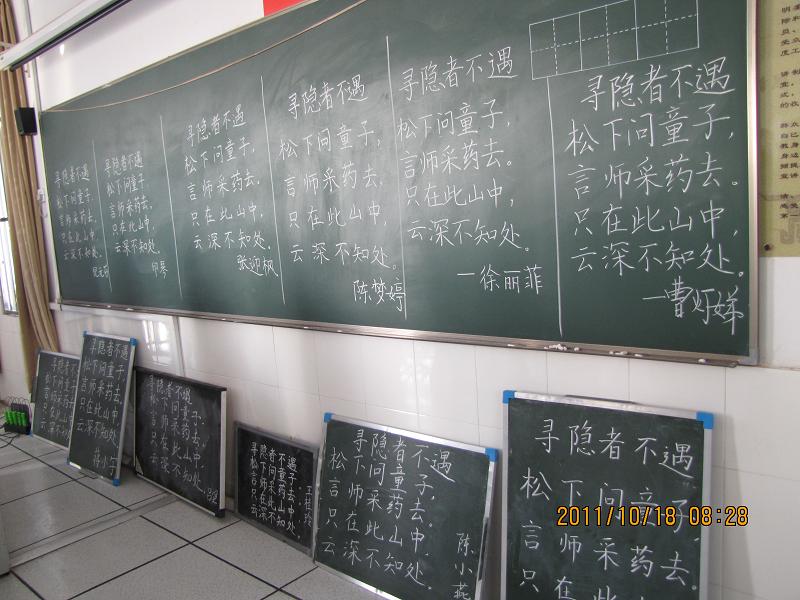 寻隐者不遇
松下问童子，
言师采药去。
只在此山中，
云深不知处。
寻隐者不遇
松下问童子，
言师采药去。
只在此山中，
云深不知处。
印琴
寻隐者不遇
松下问童子，
言师采药去。
只在此山中，
云深不知处。
张迎枫
寻隐者不遇
松下问童子，
言师采药去。
只在此山中，
云深不知处。
陈梦婷
寻隐者不遇
松下问童子，
言师采药去。
只在此山中，
云深不知处。
—徐丽菲
寻隐者不遇
松下问童子，
言师采药去。
只在此山中，
云深不知处。
—曹灯娣
寻隐者不遇
松下问童子
言师采药去
只在此山中
云深不知处
寻隐者不遇
松下问童子
言师采药去
只在此山中
云深不知处
寻隐者不遇
松下问童子
言师采药去
只在此山中
云深不知处
寻隐者不遇
松下问童子
言师采药去
只在此山中
云深不知处
王桂玲
寻隐者不遇
松下问童子，
言师采药去。
只在此山中，
云深不知处。
陈小燕
寻隐者不遇
松下问童子，
言师采药去
只在此山
2011/10/18 08:28